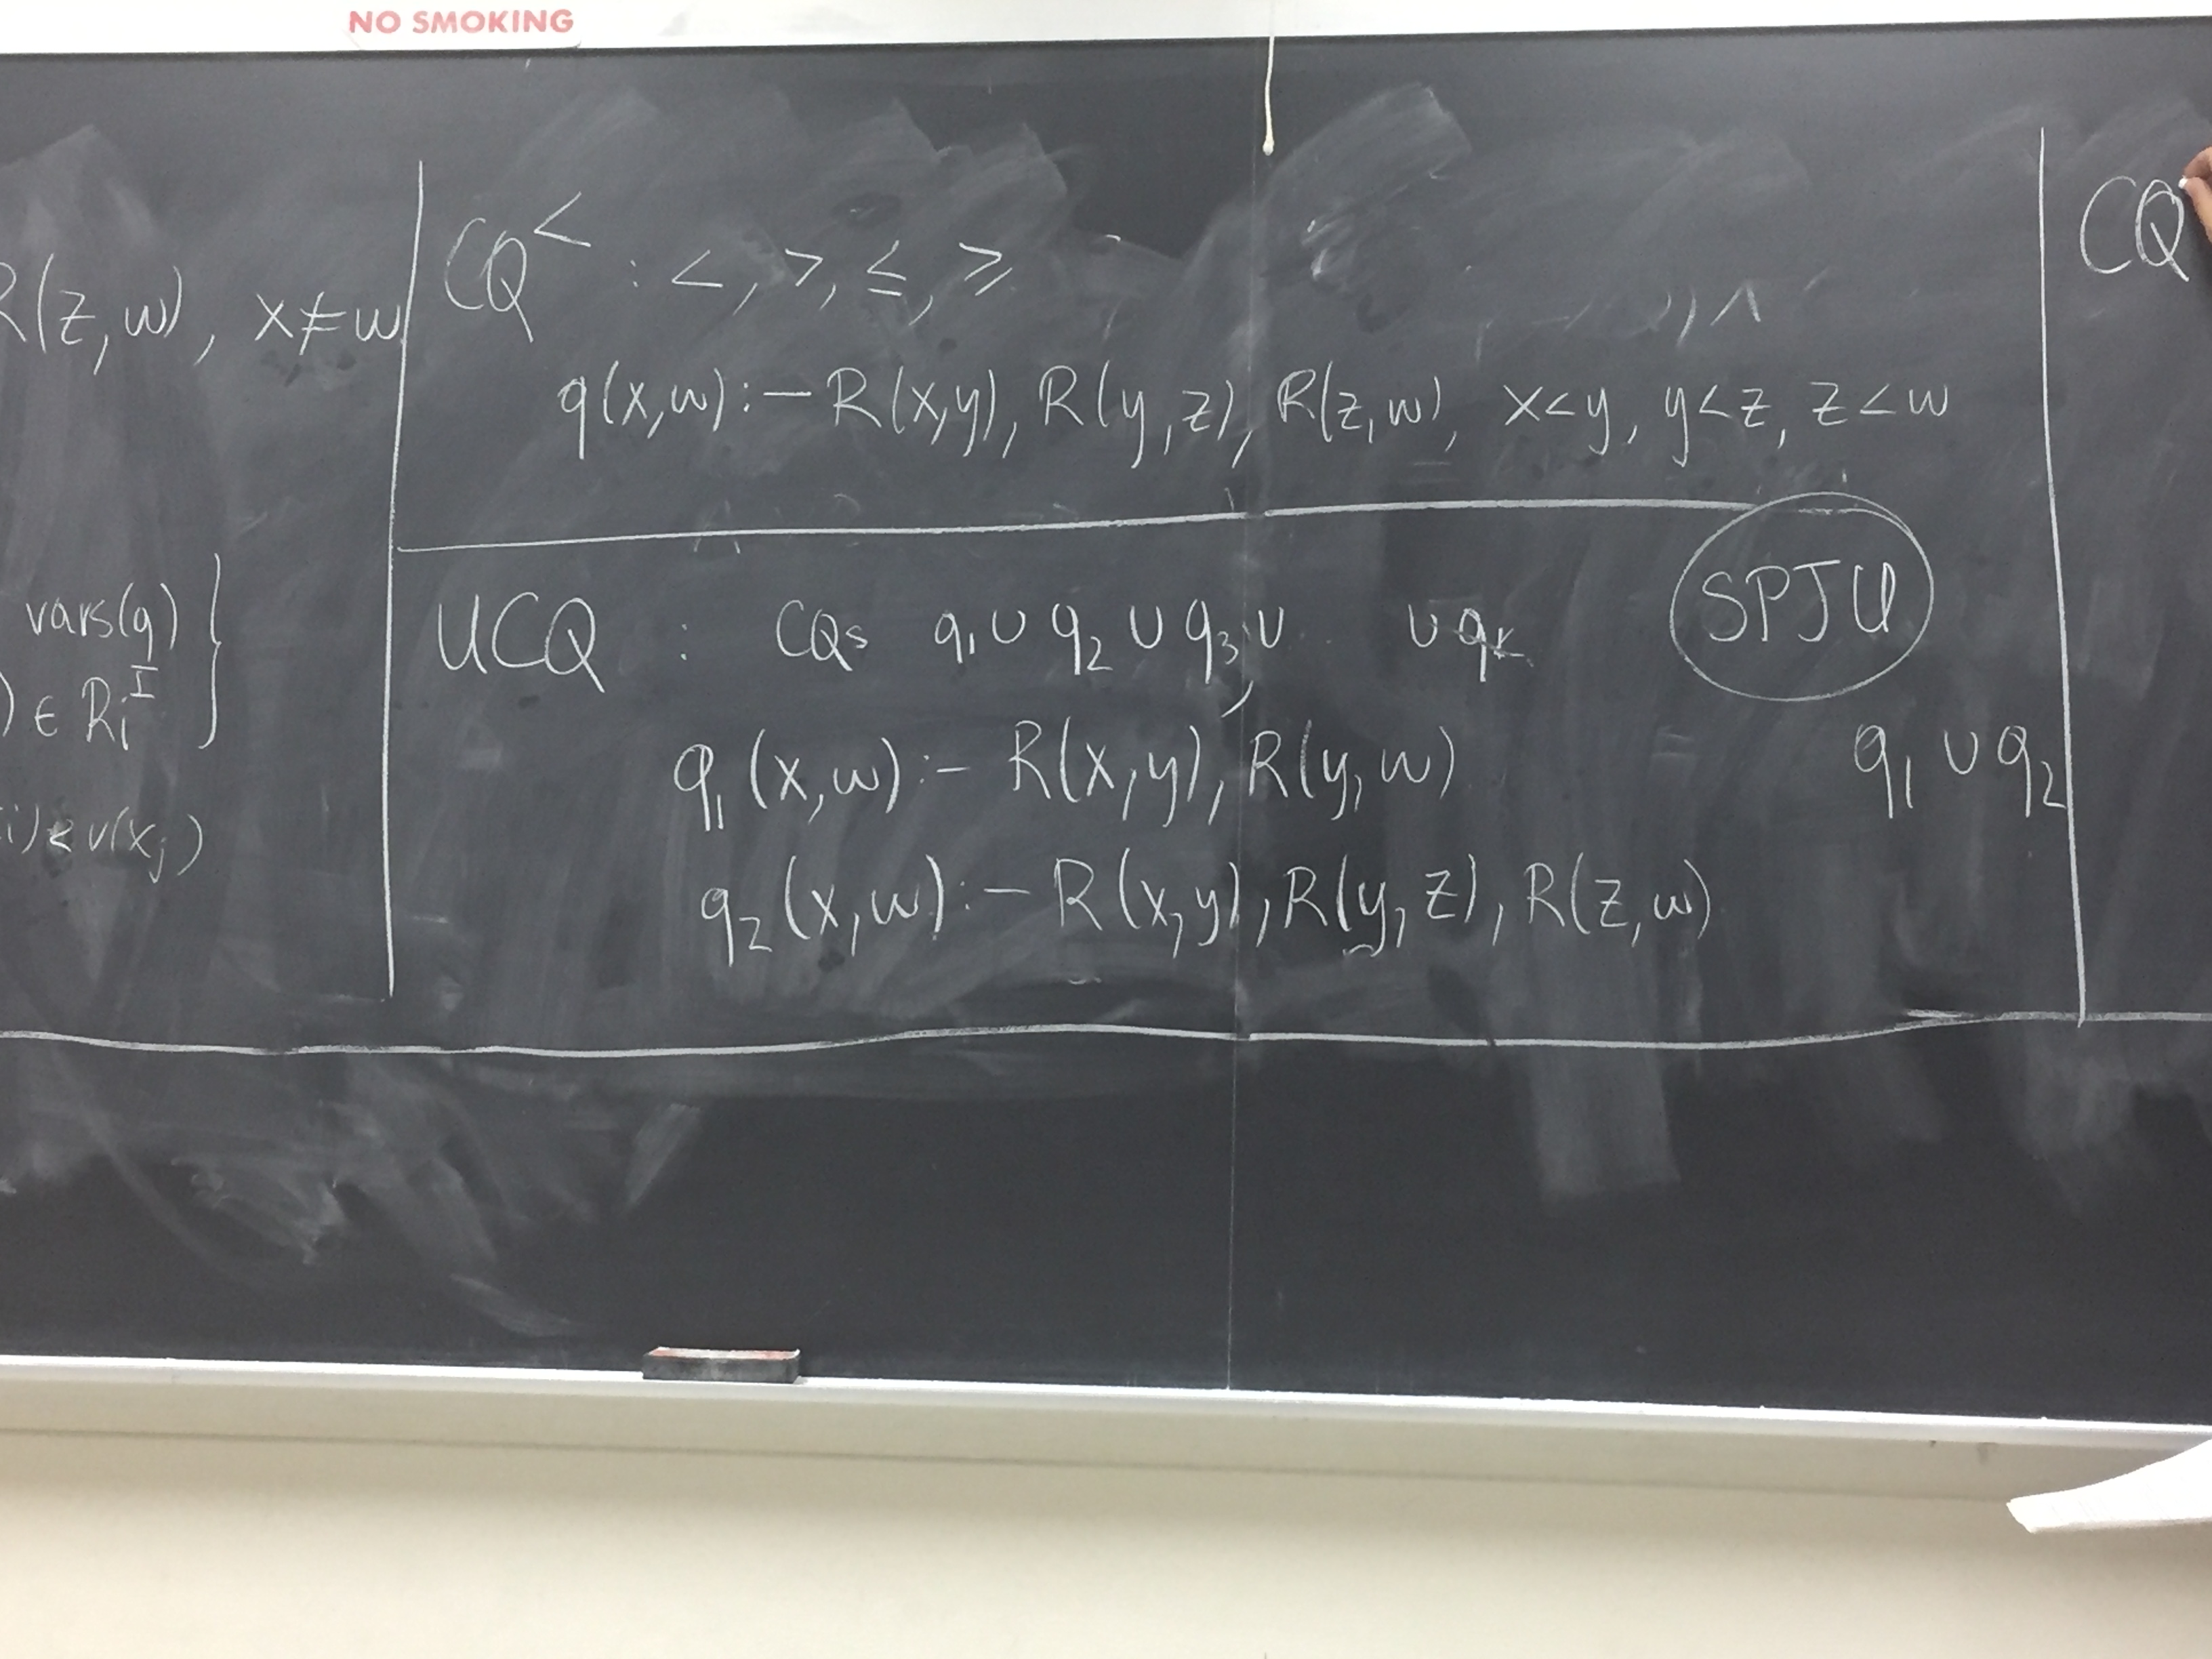 NO SMOKING
R(z,w), x≠w
vars(q) }
) ∈ Ri^I
i) < v(xj)
CQ^< : <, >, ≤, ≥
q(x,w):- R(x,y), R(y,z), R(z,w), x<y, y<z, z<w
UCQ : CQs q₁ ∪ q₂ ∪ q₃ ∪ ∪ qₖ SPJU
q₁(x,w):- R(x,y), R(y,w) q₁ ∪ q₂
q₂(x,w):- R(x,y), R(y,z), R(z,w)
CQ